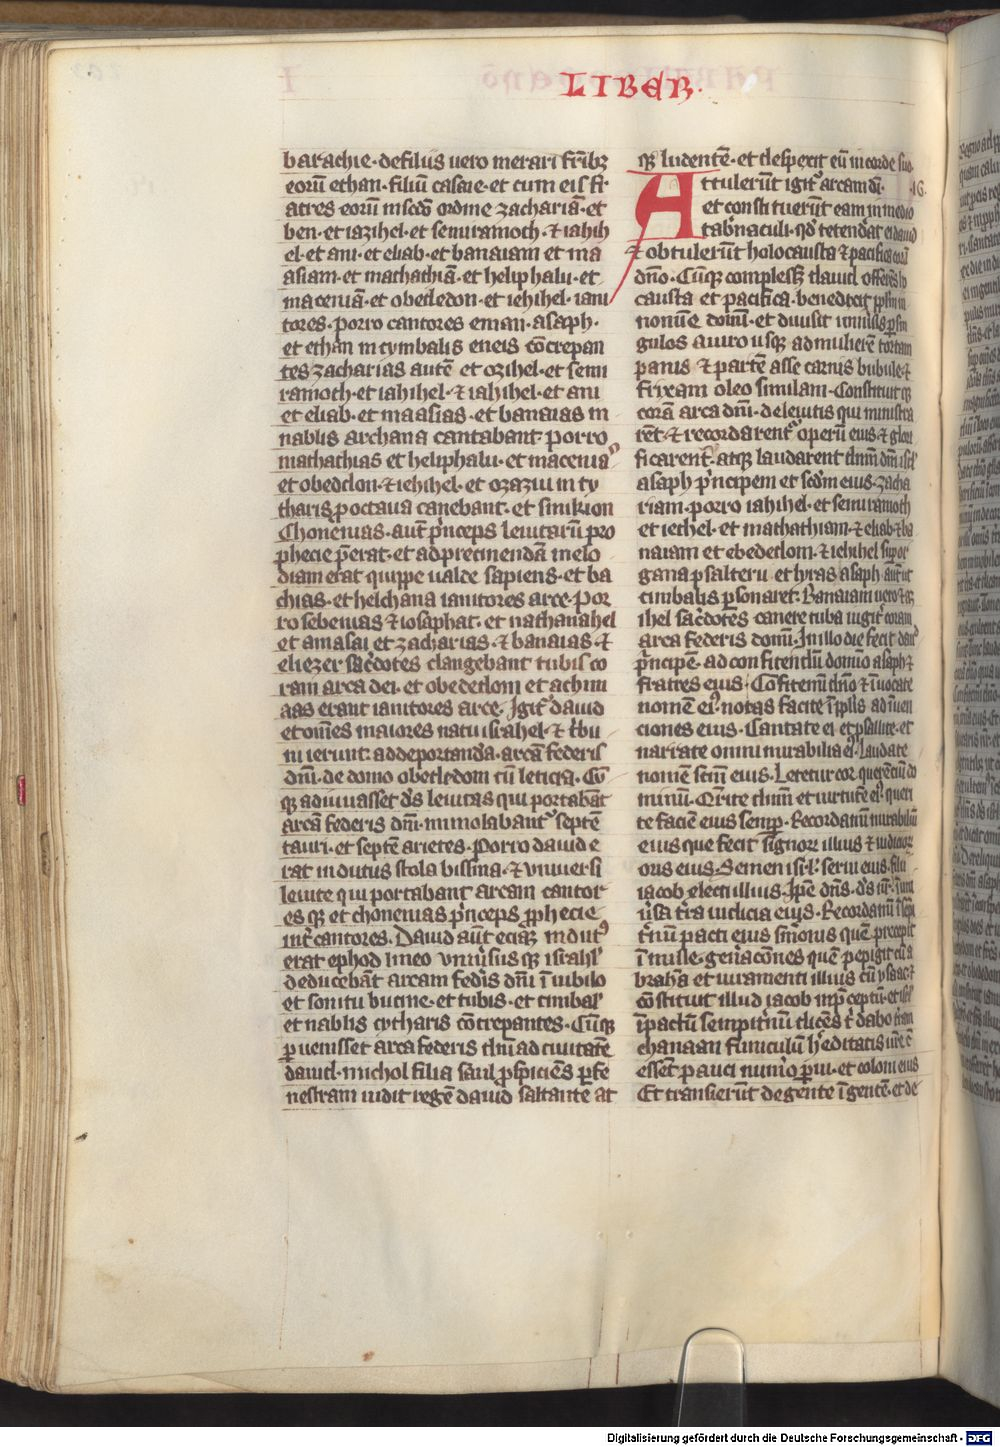 LIBER.
barachie. de filiis uero merari fribꝫ
eoꝝ ethan. filiū casaie. et cum eis fr̄
atres eorū in scdō ordine zachariā. et
ben. et iazihel. et semiramoth. ⁊ iahih
el. et ani. et eliab. et banaiam et ma
asiam. et mathathiā. et heliphalu. et
maceniā. et obededon. et iehihel. iani
tores. porro cantores eman. asaph.
et ethan in cymbalis eneis cōcrepan
tes zacharias autē et ozihel. et semi
ramoth. et iahihel. ⁊ iahihel. et ani
et eliab. et maasias. et banaias in
nablis archana cantabant. porro
mathathias et heliphalu. et macenia
et obeddon. ⁊ iehihel. et ozaziu in cy
tharis ꝓ octaua canebant. et sinikion
Chonenias. aut̄ pͥnceps leuitarū pro
phecie p̄erat. et ad precinendā melo
diam erat quippe ualde sapiens. et ba
chias. et helchana ianitores arce. Por
ro sebenias ⁊ iosaphat. et nathanahel
et amasai et zacharias. ⁊ banaias. ⁊
eliezer sac̄dotes clangebant tubis co
ram arca dei. et obededom et achim
aas erant ianitores arce. Igit͛ dauid
et om̄es maiores natu israhel. ⁊ tͥbu
ni ierunt. ad deportanda. arcā federis
dn̄i. de domo obededom cū leticia. Cū
qꝫ adiuuasset d̄s leuitas qui portabāt
arcā federis dn̄i. immolabant͛ septē
tauri. et septē arietes. Porro dauid e
rat indutus stola bissina. ⁊ uniuersi
leuite qui portabant arcam cantor
es qꝫ et chonenias pͥnceps ꝓphecie
int̄ cantores. Dauid aūt eciaꝫ indutꝰ
erat ephod lineo vniūsus qꝫ israhl'
deducebāt arcam fed̄is dn̄i ī iubilo
et sonitu bucine. et tubis. et cimbal'
et nablis cytharis cōcrepantes. Cūqꝫ
ꝑuenisset arca federis dn̄i ad ciuitatē
dauid. michol filia saul ꝓspiciēs ꝑ fe
nestram uidit regē dauid saltantē at
qꝫ ludentē. et despexit eū in corde suo.
Attulerūt igit͛ arcam dī. .16.
et constituerūt eam in medio
tab̄naculi. qd̄ tetend̄at ei dauid
⁊ obtulerūt holocausta ⁊ pacifica corā
dn̄o. Cūqꝫ complesset dauid offerēs ho
causta et pacifica. benedixit pplm̄ in
nomine domī. et diuisit uniūsis ꝑ sin
gulos a uiro usqꝫ ad mulierē tortam
panis ⁊ partē asse carnis bubule. ⁊
frixam oleo similam. Constituit qꝫ
corā arca dn̄i. de leuitis qui ministra
rēt. ⁊ recordarent͛ operū eius ⁊ glori
ficarent. atqꝫ laudarent dn̄m dm̄ isr̄l
asaph pͥncipem et scd̄m eius. zacha
riam. porro iahihel. et semiramoth
et iechel. et mathathiam. ⁊ eliab. ⁊ ba
naiam et ebededom. ⁊ iehihel suꝑ or
gana psalterii et lyras asaph aut̄ ut
cimbalis ꝑsonaret. Banaiam uero ⁊ az
ihel sac̄dotes canere tuba iugit̄ coram
arca federis domī. In illo die fecit dauͥ
pͥncipē. ad confitendū domino asaph ⁊
fratres eius. Confitemī dn̄o ⁊ īuocate
nomē eiꝰ. notas facite ī pplis ad īuen
ciones eius. Cantate ei et psallite. et
narrate omīi mirabilia eiꝰ. Laudate
nomē sc̄m eius. Letetur cor querēciū do
minū. Qͥrite dn̄m et uirtutē eiꝰ queri
te faciē eius semꝑ. Recordamī mirabiliū
eius que fecit signorꝝ illius ⁊ iudicioꝝ
oris eius. Semen isr̄l. serui eius. filii
iacob electi illius. Ip̄e dn̄s. d̄s nr̄. ī uni
ūsa t̄ra iudicia eius. Recordamī ī semꝑi
t̄nū pacti eius sm̄onis quē precepit
ī mille. gen̄acōnes quē pepigit cū a
brahā et iuramenti illius cū ysaac. ⁊
cōstituit illud iacob in p̄ceptū. et isr̄l
ī pactū sempit̄nū dicēs t̄ dabo t̄ram
chanaan funiculū h̄editatis ur̄e. c̄
essēt pauci num̄o ꝑui. et coloni eius
Et transierūt de gente ī gentē. et de
Digitalisierung gefördert durch die Deutsche Forschungsgemeinschaft - DFG